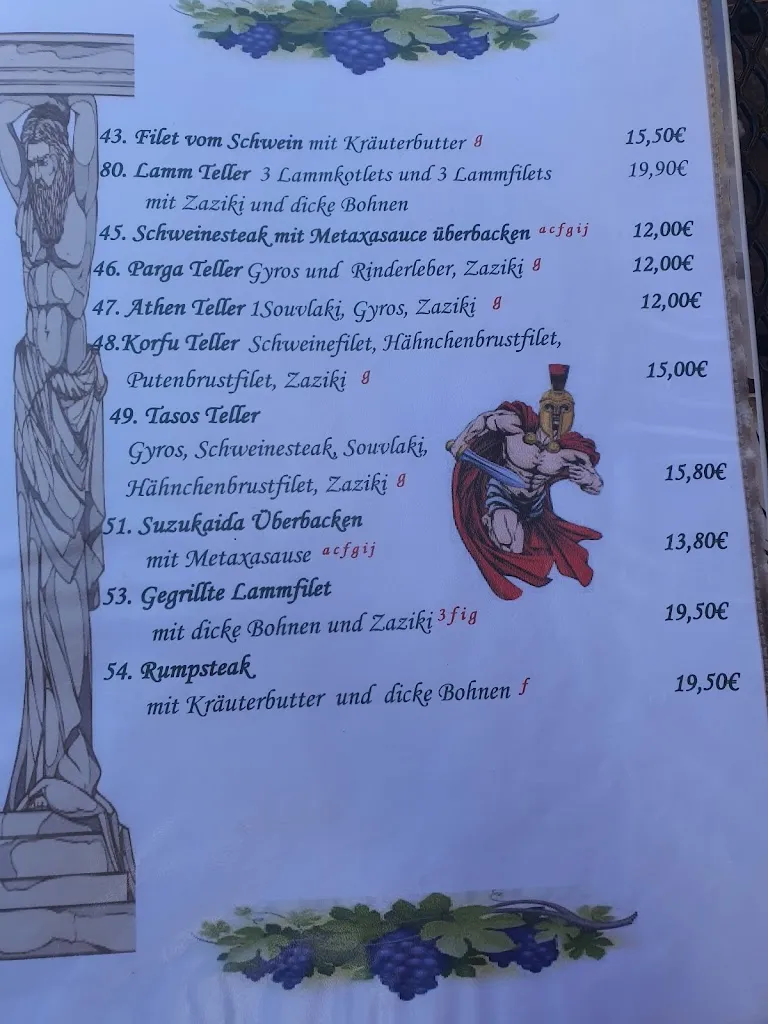 43. Filet vom Schwein mit Kräuterbutter g 15,50€
80. Lamm Teller 3 Lammkotlets und 3 Lammfilets 19,90€
mit Zaziki und dicke Bohnen
45. Schweinesteak mit Metaxasauce überbacken a c f g i j 12,00€
46. Parga Teller Gyros und Rinderleber, Zaziki g 12,00€
47. Athen Teller 1Souvlaki, Gyros, Zaziki g 12,00€
48.Korfu Teller Schweinefilet, Hähnchenbrustfilet,
Putenbrustfilet, Zaziki g 15,00€
49. Tasos Teller
Gyros, Schweinesteak, Souvlaki,
Hähnchenbrustfilet, Zaziki g 15,80€
51. Suzukaida Überbacken
mit Metaxasause a c f g i j 13,80€
53. Gegrillte Lammfilet
mit dicke Bohnen und Zaziki 3 f i g 19,50€
54. Rumpsteak
mit Kräuterbutter und dicke Bohnen f 19,50€